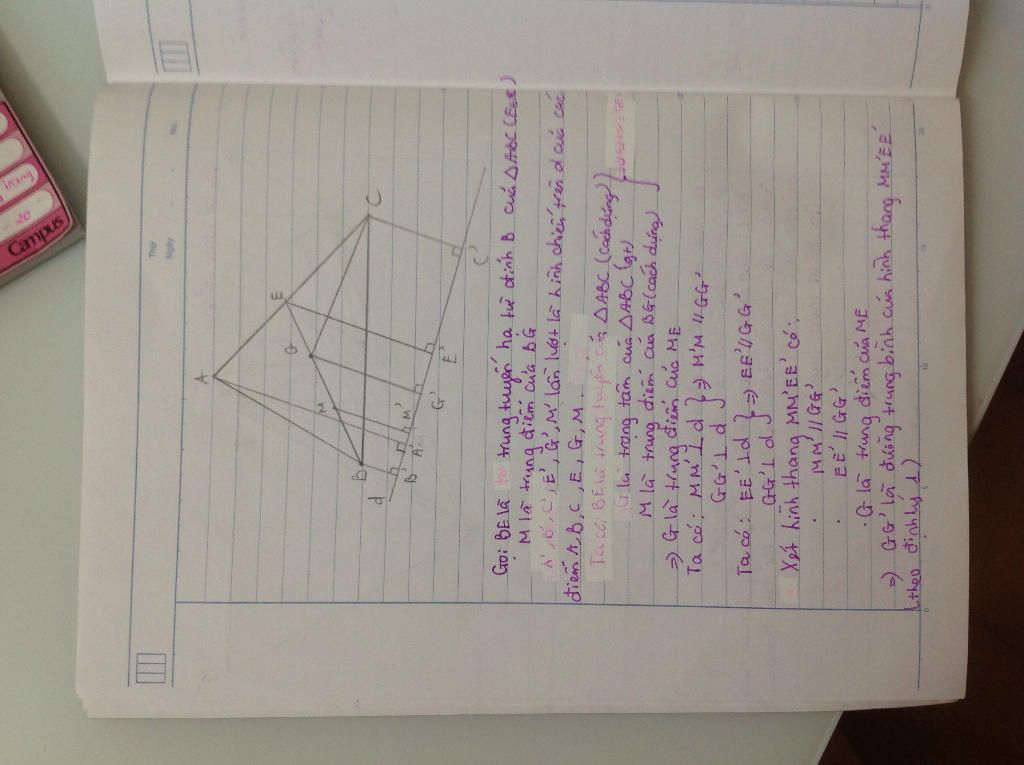 Campus
20
trang
Thứ
Ngày
No.
A
E
C
G
M
B
d
B'
A'
M'
G'
E'
C'
Gọi BE là trung tuyến hạ từ đỉnh B của △ABC (E∈
M là trung điểm của BG
A', B', C', E', G', M' lần lượt là hình chiếu trên d của các
điểm A, B, C, E, G, M.
Ta có: BE là trung tuyến của △ABC (cách dựng)
G là trọng tâm của △ABC (gt)
M là trung điểm của BG (cách dựng)
⇒ G là trung điểm của ME
Ta có: MM' ⊥ d } ⇒ M'M // GG'
GG' ⊥ d
Ta có: EE' ⊥ d } ⇒ EE' // GG'
GG' ⊥ d
Xét hình thang MM'EE' có:
· MM' // GG'
· EE' // GG'
· G là trung điểm của ME
⇒ GG' là đường trung bình của hình thang MM'EE'
(theo định lý 1)